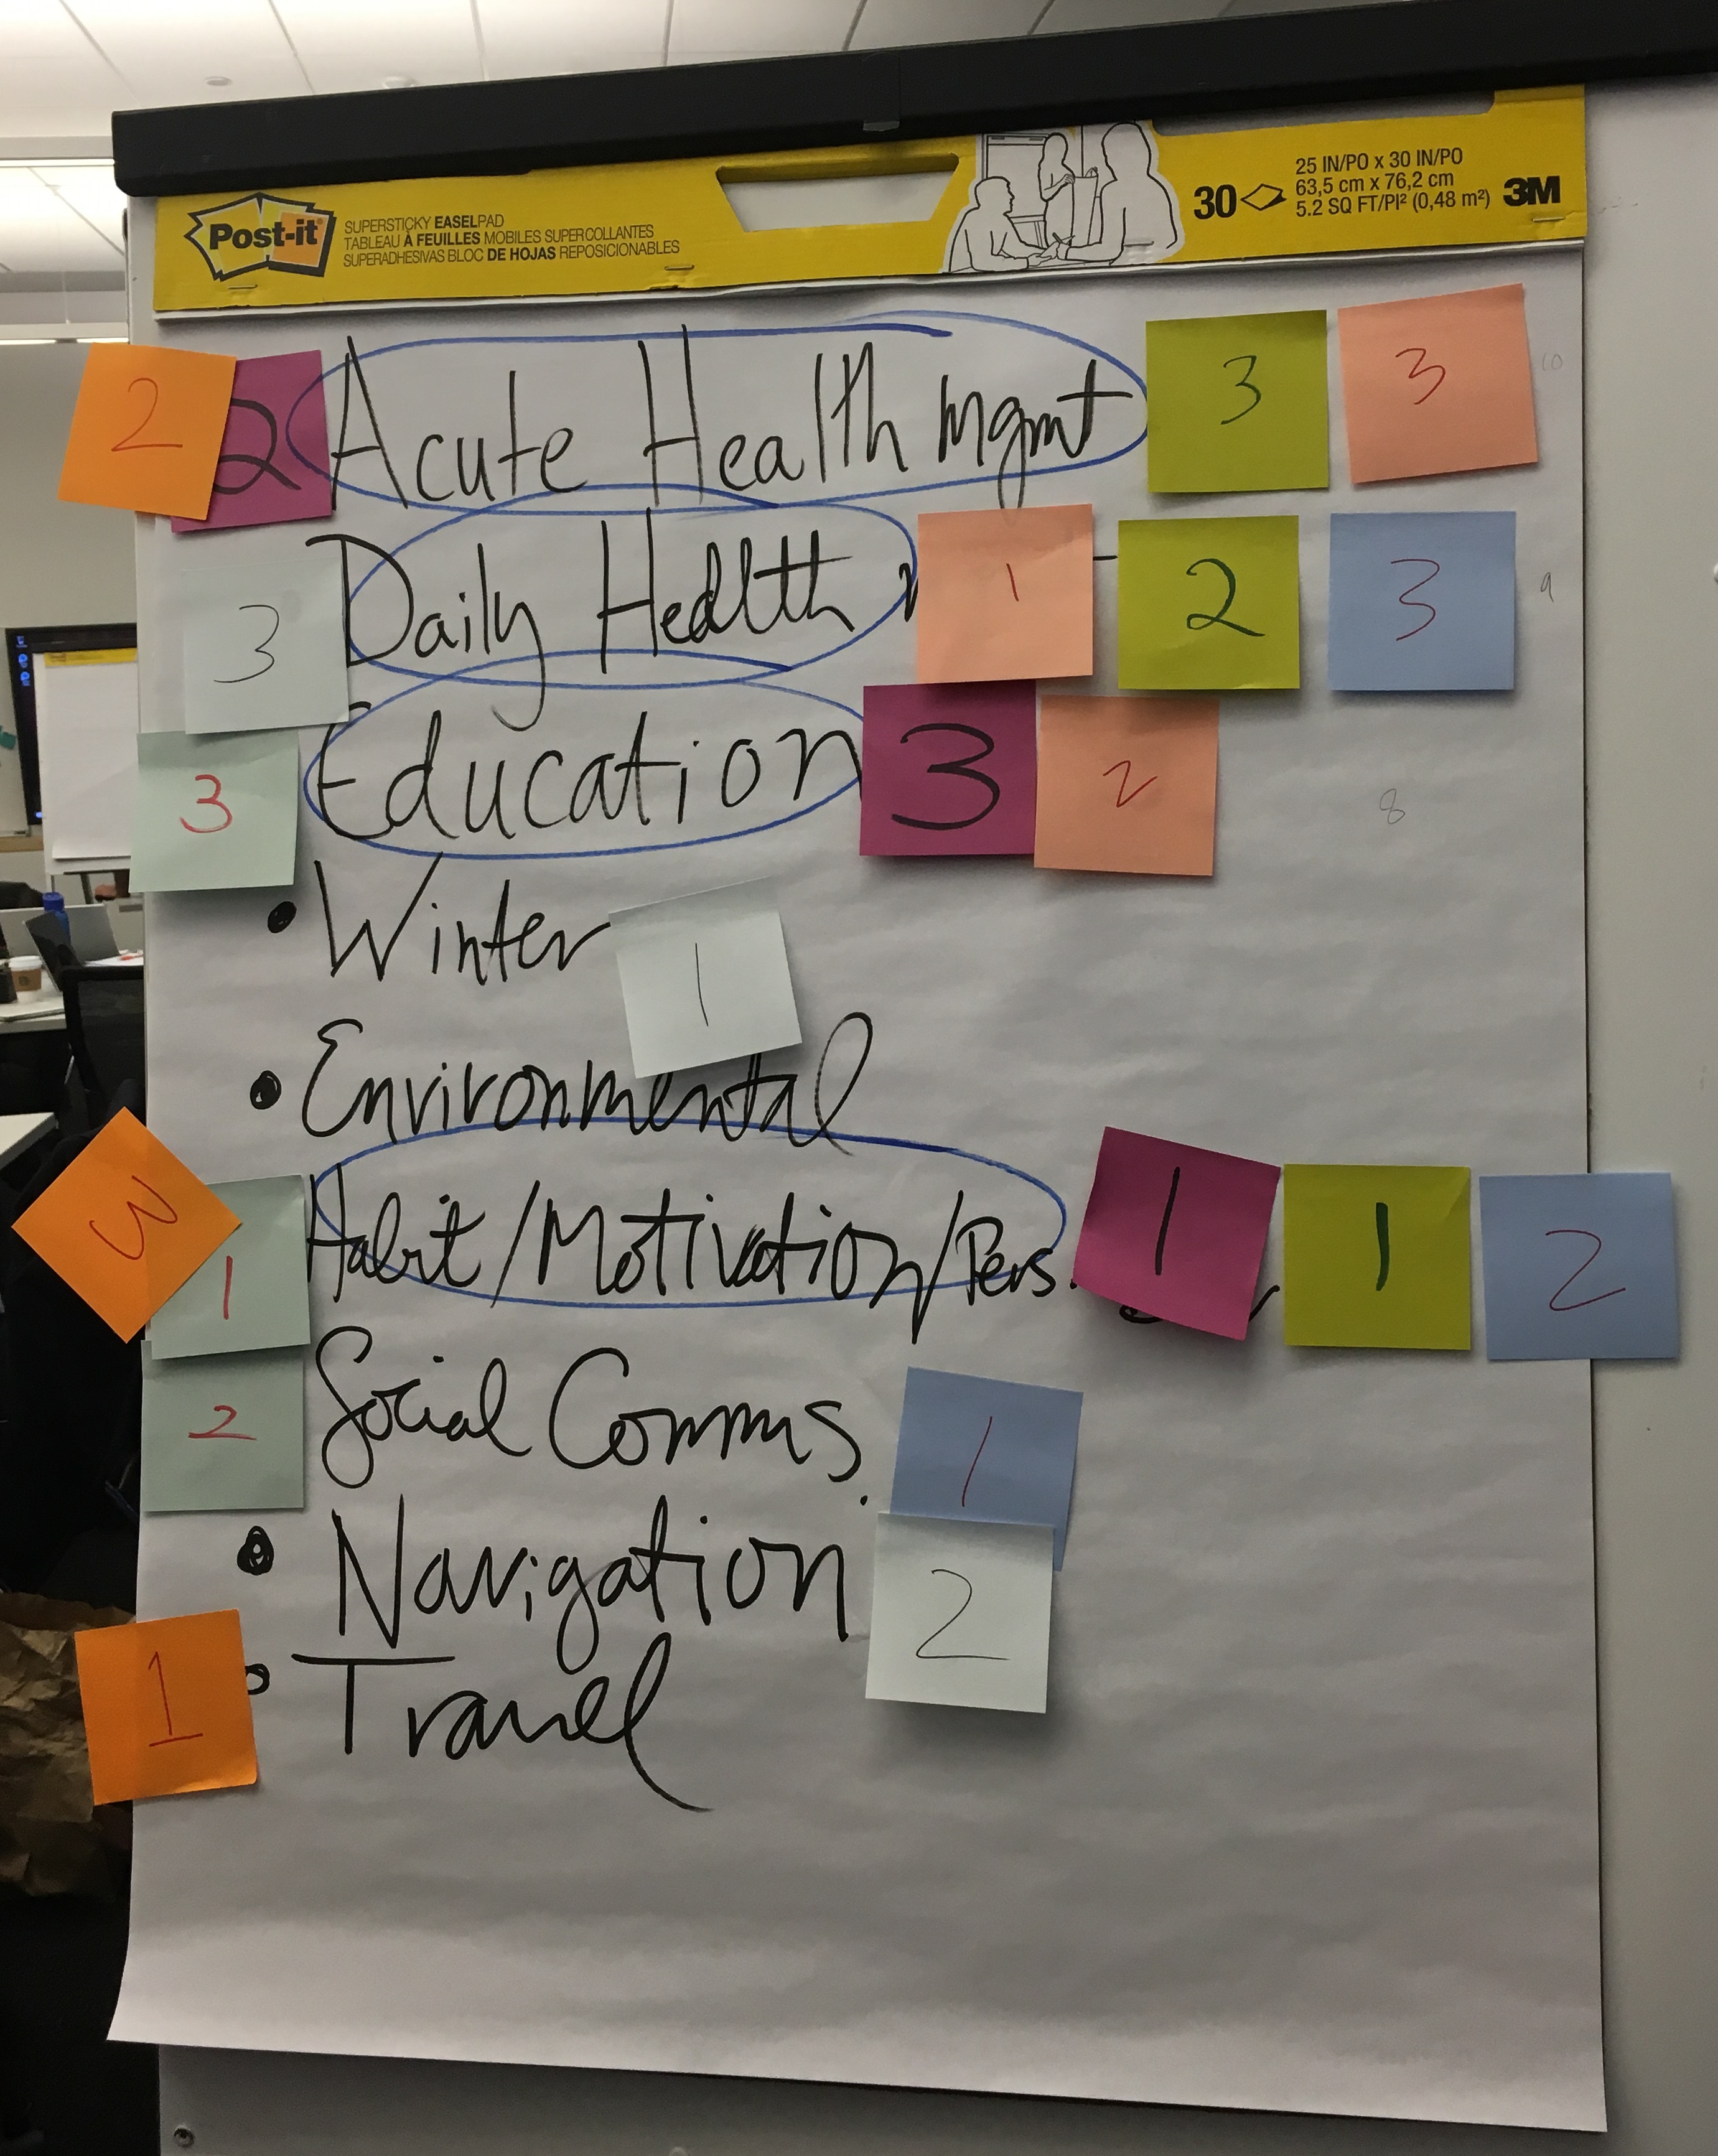 Post-it
SUPERSTICKY EASELPAD
TABLEAU À FEUILLES MOBILES SUPERCOLLANTES
SUPERADHESIVAS BLOC DE HOJAS REPOSICIONABLES
30
25 IN/PO x 30 IN/PO
63,5 cm x 76,2 cm
5.2 SQ FT/PI² (0,48 m²)
3M
2 2 Acute Health Mgmt 3 3 10
3 Daily Health 1 2 3 9
3 Education 3 2 8
• Winter 1
• Environmental
3 1 Habit/Motivation/Pers. 1 1 2
2 Social Comms. 1
• Navigation 2
1 • Travel